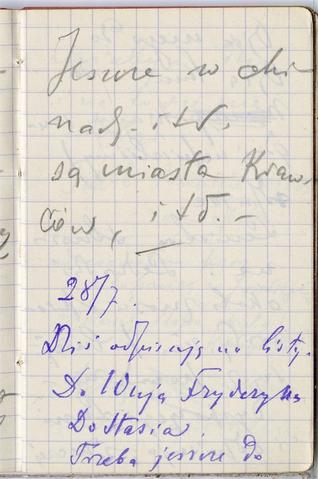 Jeszcze w chi
nach i t.d.
są miasta Kraw-
ców, i t.d. –
28/7.
Dziś odpisuję na listy.
Do Wuja Fryderyka
Do Stasia.
Trzeba jeszcze do